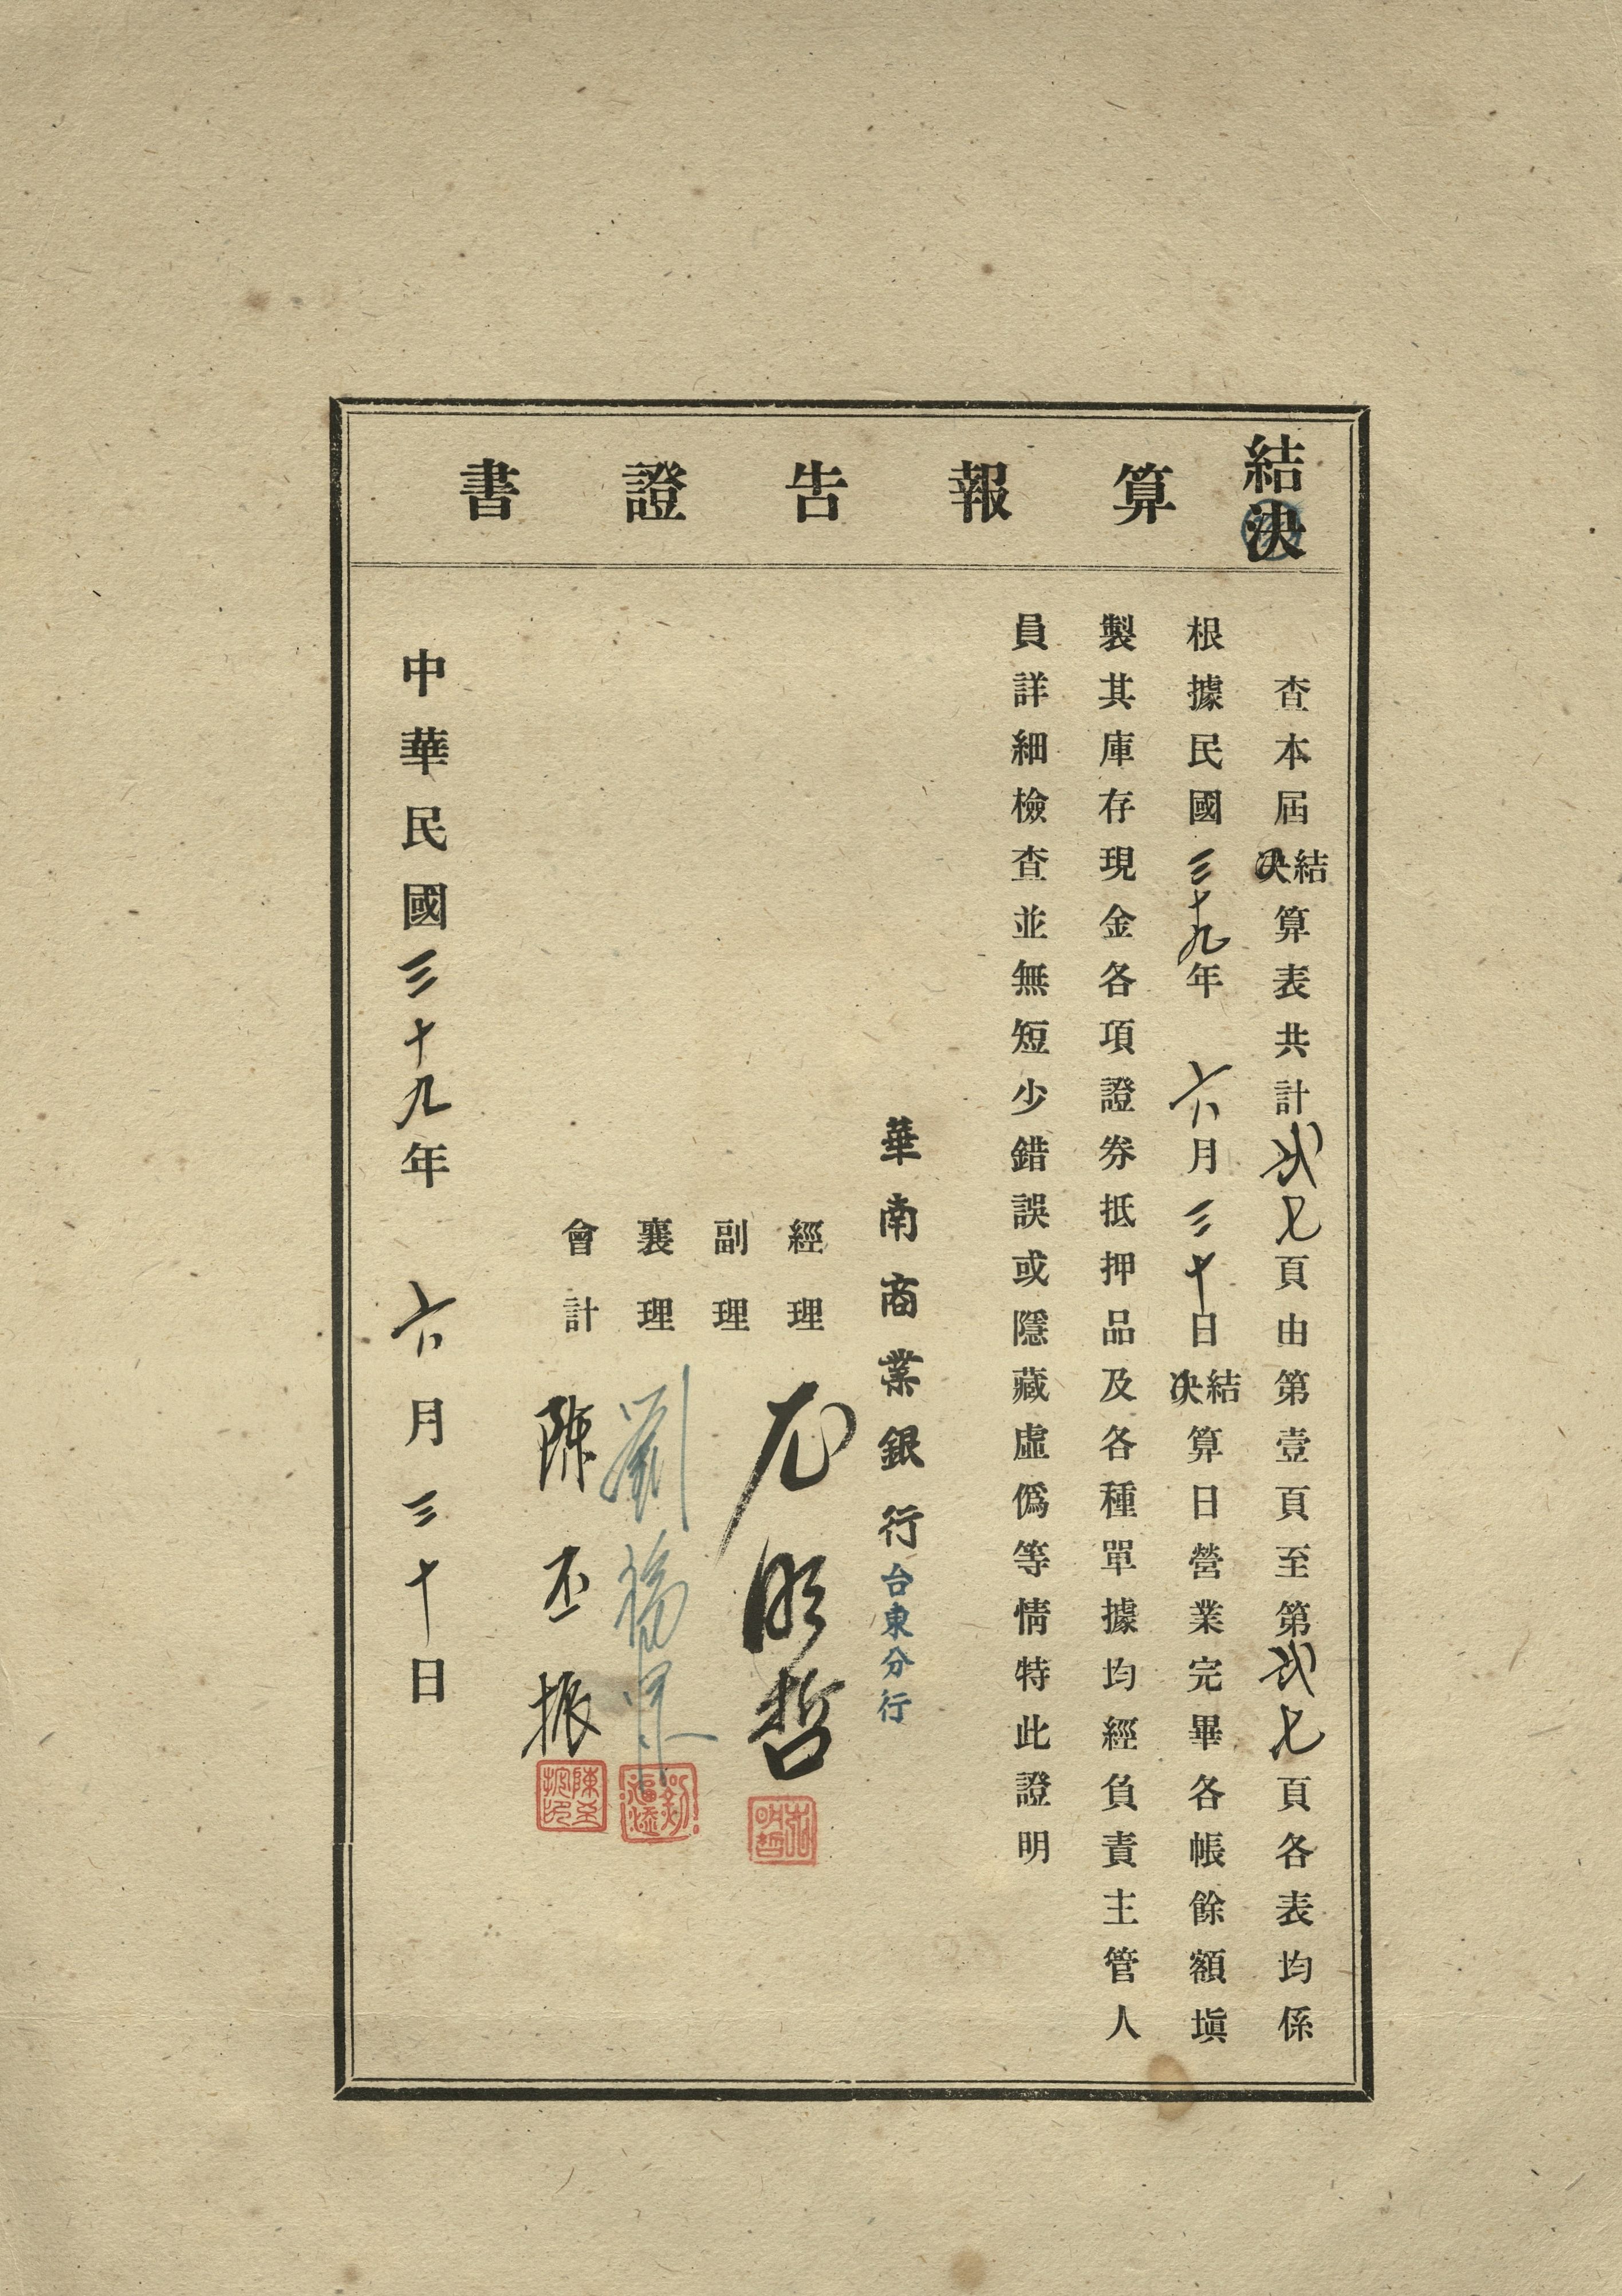 結決算報告證書
查本屆結決算表共計貳七頁由第壹頁至第貳七頁各表均係
根據民國三十九年六月三十日結決算日營業完畢各帳餘額塡
製其庫存現金各項證券抵押品及各種單據均經負責主管人
員詳細檢查並無短少錯誤或隱藏虛僞等情特此證明
華南商業銀行台東分行
經理 尤明哲
副理
襄理 劉
會計 陳丕振
中華民國三十九年六月三十日